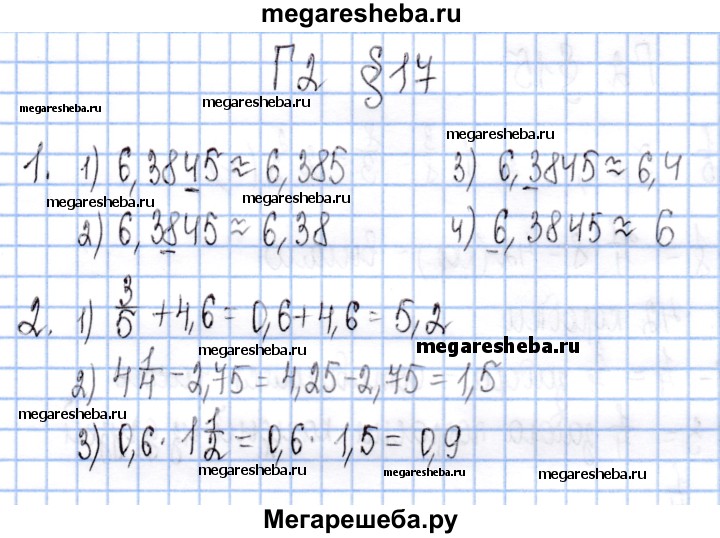 megaresheba.ru
Г2 §17
megaresheba.ru megaresheba.ru
1. 1) 6,3845 ≈ 6,385 3) 6,3845 ≈ 6,4
megaresheba.ru
megaresheba.ru megaresheba.ru
2) 6,3845 ≈ 6,38 4) 6,3845 ≈ 6
2. 1) 3/5 + 4,6 = 0,6 + 4,6 = 5,2
megaresheba.ru megaresheba.ru
2) 4 1/4 - 2,75 = 4,25 - 2,75 = 1,5
megaresheba.ru megaresheba.ru
3) 0,6 · 1 1/2 = 0,6 · 1,5 = 0,9
megaresheba.ru megaresheba.ru megaresheba.ru
Мегарешеба.ру